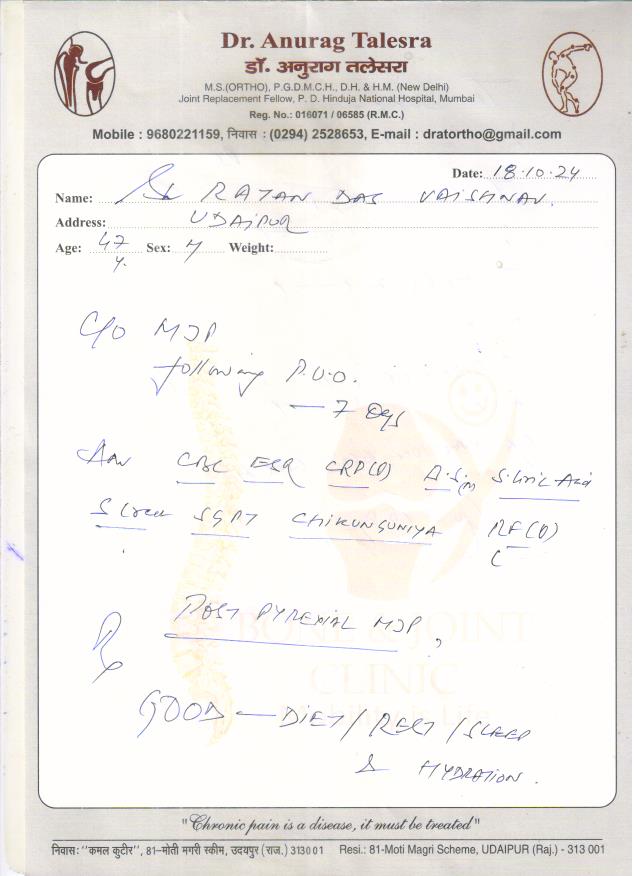 Dr. Anurag Talesra
डॉ. अनुराग तलेसरा
M.S.(ORTHO), P.G.D.M.C.H., D.H. & H.M. (New Delhi)
Joint Replacement Fellow, P. D. Hinduja National Hospital, Mumbai
Reg. No.: 016071 / 06585 (R.M.C.)
Mobile : 9680221159, निवास : (0294) 2528653, E-mail : dratortho@gmail.com
Date: 18.10.24
Name: RATAN DAS VAISHNAV.
Address: UDAIPUR
Age: 47 y. Sex: M Weight:
C/o MJP
following P.U.O.
— 7 Days
Adv CBC ESR CRP(Q) S.Uric Acid
S Creat SGPT CHIKUNGUNIYA RF(Q)
Rx POST PYREXIAL MJP
BONE & JOINT
CLINIC
GOOD — DIET / REST / SLEEP
& HYDRATION.
"Chronic pain is a disease, it must be treated"
निवास: "कमल कुटीर", 81–मोती मगरी स्कीम, उदयपुर (राज.) 313001 Resi.: 81-Moti Magri Scheme, UDAIPUR (Raj.) - 313 001